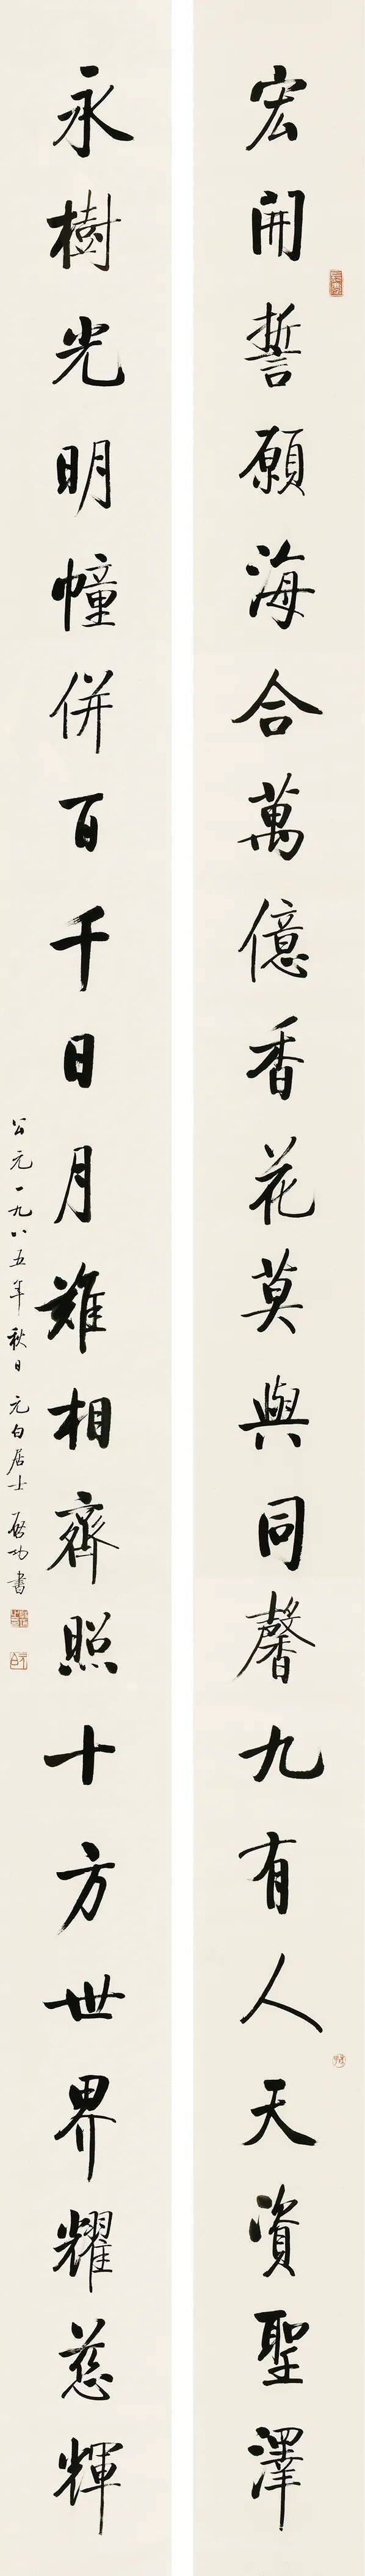 宏開誓願海合萬億香花莫與同馨九有人天資聖澤
永樹光明幢併百千日月難相齊照十方世界耀慈輝
公元一九八五年秋日 元白居士 啓功書